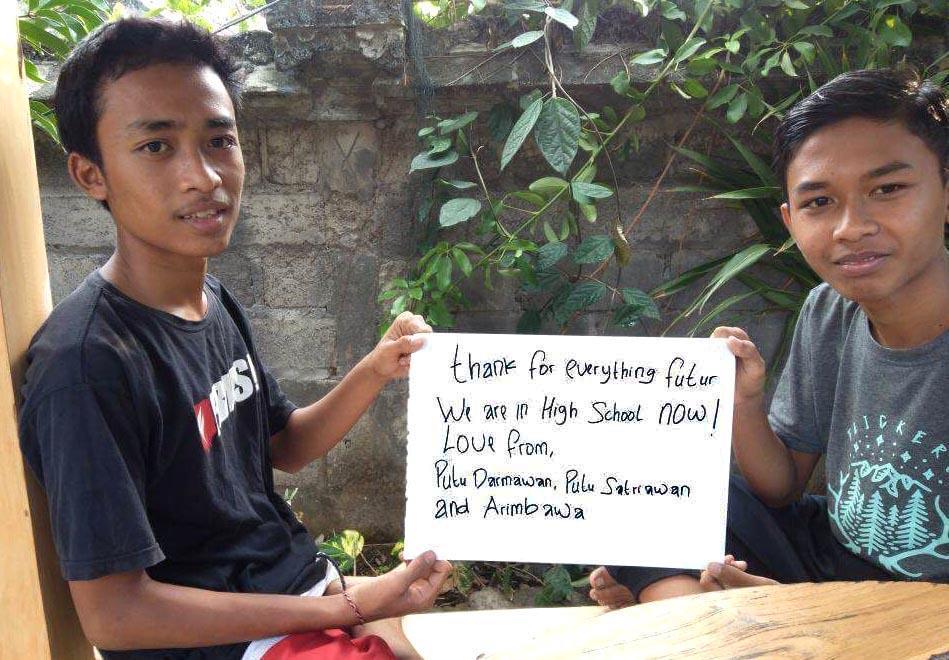 thank for everything futur
We are in High School now!
Love from,
Putu Darmawan, Putu Satriawan
and Arimbawa